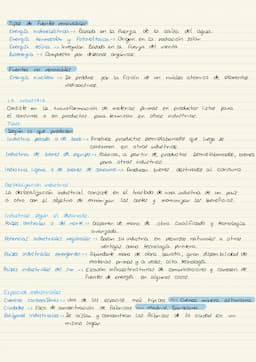 Tipos de fuente renovable
Energía hidroeléctrica → Basada en la fuerza de la caída del agua.
Energía termosolar y fotovoltaica → Origen en la radiación solar
Energía eólica → Irregular. Basada en la fuerza del viento
Bioenergía → Compuesta por desechos orgánicos
Fuentes no renovables
Energía nuclear → Se produce por la fisión de un núcleo atómico de elementos
radioactivos.
La industria
Consiste en la transformación de materias primas en productos listos para
el consumo o en productos para terminar en otras industrias.
Tipos
Según lo que producen
Industria pesada o de base → Produce productos semielaborados que luego se
consumen en otras industrias.
Industria de bienes de equipo → Fabrica, a partir de productos semielaborados, bienes
para otras industrias
Industria ligera o de bienes de consumo → Producen bienes destinados al consumo
Deslocalización industrial:
La deslocalización industrial consiste en el traslado de una industria de un país
a otro con el objetivo de minimizar los costes y maximizar los beneficios.
Industrias según el desarrollo
Países centrales o del norte → Disponen de mano de obra cualificada y tecnología
avanzada.
Potencias industriales regionales → Basan la industria en recursos naturales u otras
ventajas como tecnología puntera.
Países industriales emergentes → Abundante mano de obra barata, gran disponibilidad de
materias primas y a veces, alta tecnología.
Países industriales del sur → Escasas infraestructuras de comunicaciones y carecen de
fuentes de energía en algunos casos.
Espacios industriales
Ciudades → Foco de concentración de fábricas → Madrid, Barcelona
Polígonos industriales → Se sitúan y concentran las fábricas de la ciudad en un
mismo lugar